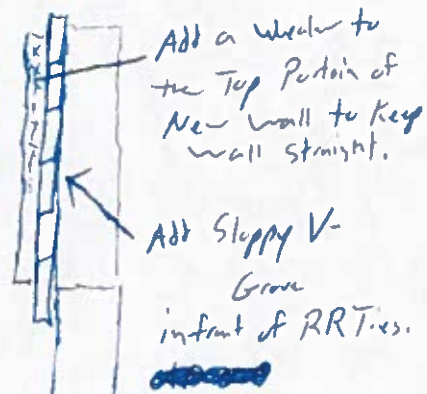 Add a whealer to
the Top Portoin of
New wall to Keep
wall straight.
Add Sloppy V-
Grove
infront of RRTies.